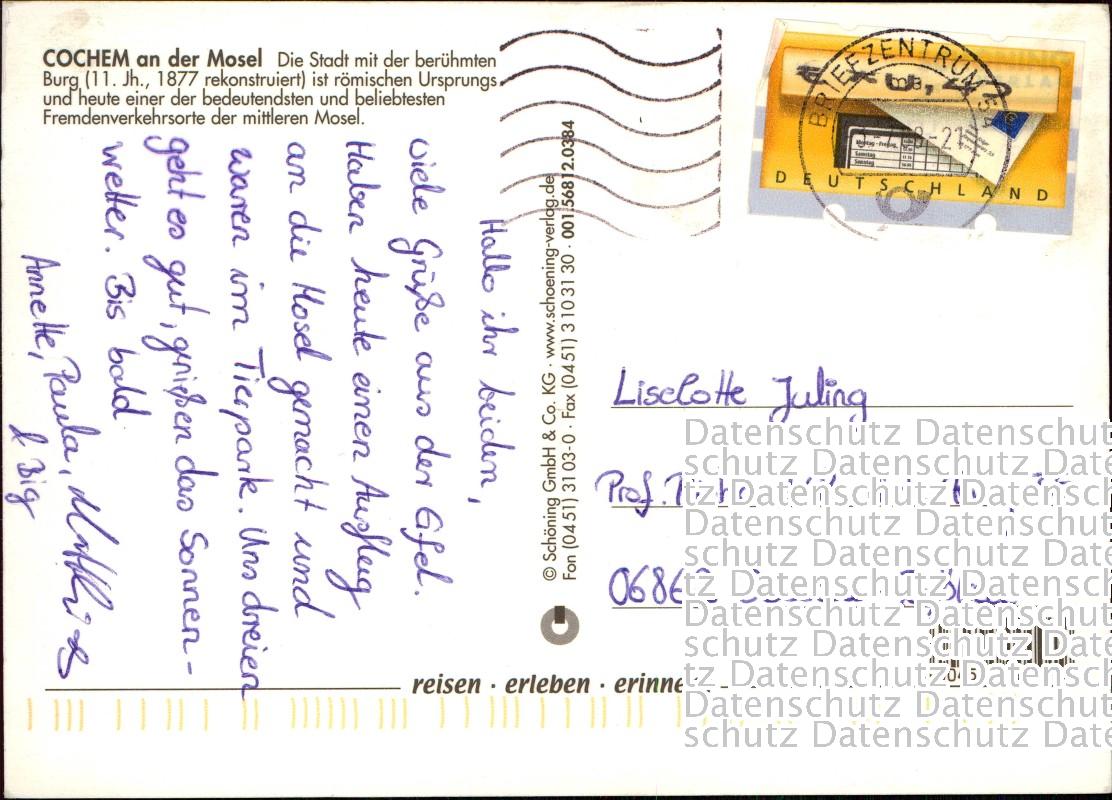 COCHEM an der Mosel Die Stadt mit der berühmten
Burg (11. Jh., 1877 rekonstruiert) ist römischen Ursprungs
und heute einer der bedeutendsten und beliebtesten
Fremdenverkehrsorte der mittleren Mosel.
Hallo ihr beiden,
viele Grüße aus der Eifel.
Haben heute einen Ausflug
an die Mosel gemacht und
waren im Tierpark. Uns dreien
geht es gut, grüßen das Sonnen-
wetter. Bis bald
Annette, Paula, Matthias
& Big
© Schöning GmbH & Co. KG · www.schoening-verlag.de
Fon (04 51) 3 10 3-0 · Fax (04 51) 3 10 31 30 · 001.56812.0384
BRIEFZENTRUM 54
DEUTSCHLAND
Montag - Freitag
Samstag
Sonntag
Liselotte Juling
Prof.
0686
reisen · erleben · erinne
Datenschutz Datenschut
schutz Datenschutz Date
tz Datenschutz Datensch
Datenschutz Datenschut
schutz Datenschutz Date
tz Datenschutz Datensch
Datenschutz Datenschut
schutz Datenschutz Date
tz Datenschutz Datensch
Datenschutz Datenschut
schutz Datenschutz Date